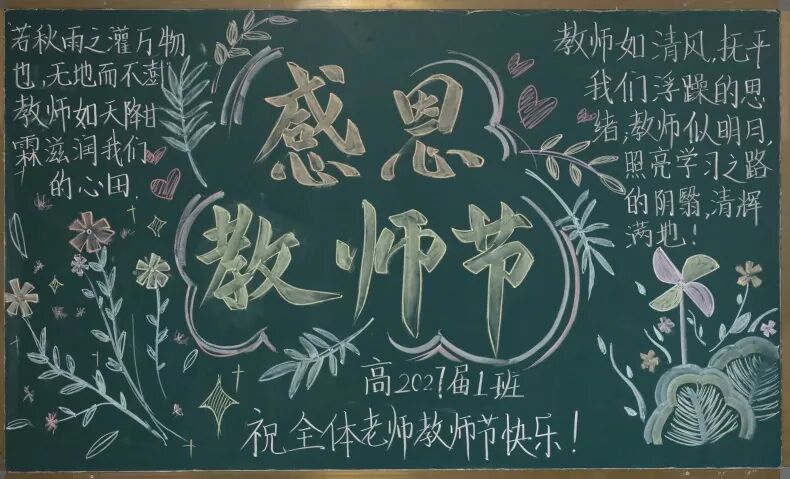 若秋雨之灌万物
也,无地而不澍
教师如天降甘
霖滋润我们
的心田.
感恩
教师节
教师如清风,抚平
我们浮躁的思
绪;教师似明月,
照亮学习之路
的阴翳,清辉
满地!
高2027届1班
祝全体老师教师节快乐!